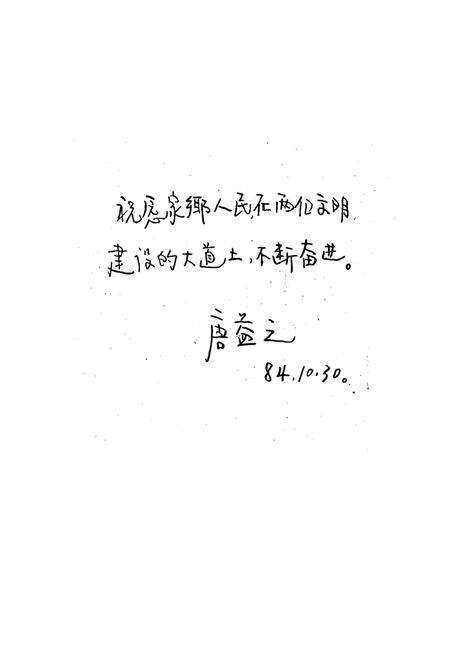 祝愿家鄉人民,在两个文明
建设的大道上,不断奋进。
唐益之
84.10.30。